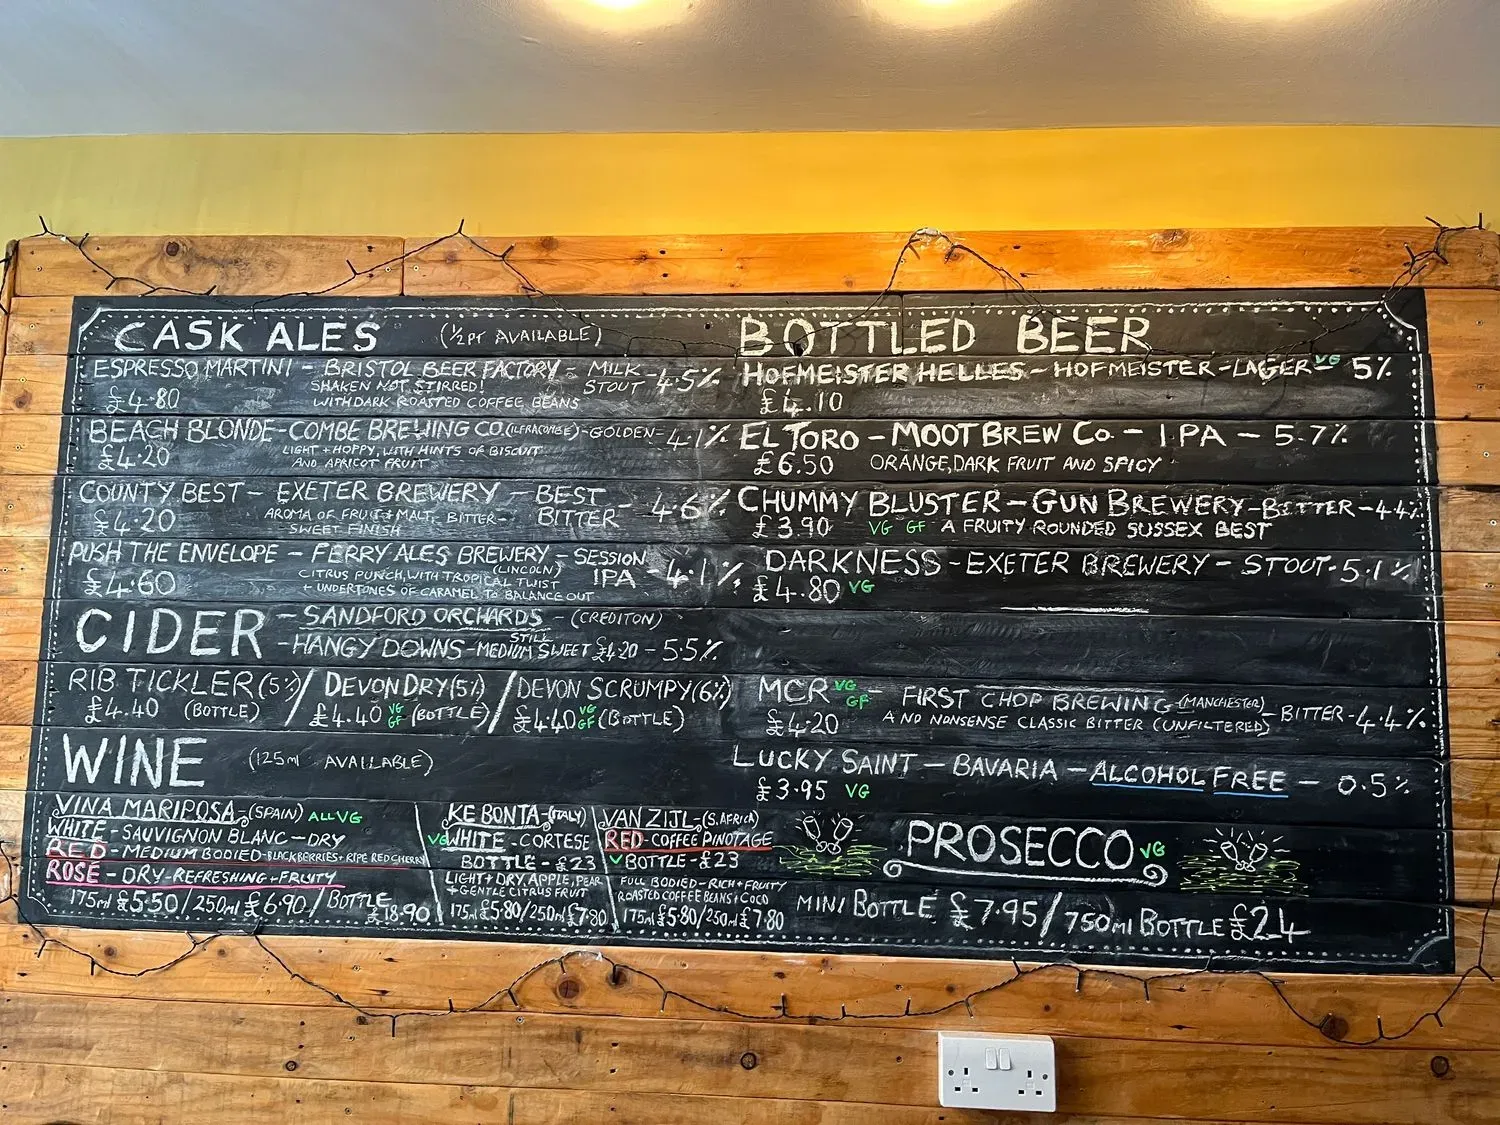 CASK ALES (½pt AVAILABLE)
ESPRESSO MARTINI - BRISTOL BEER FACTORY - MILK STOUT - 4.5%
£4.80 SHAKEN NOT STIRRED!
WITH DARK ROASTED COFFEE BEANS
BEACH BLONDE - COMBE BREWING CO. (ILFRACOMBE) - GOLDEN - 4.1%
£4.20 LIGHT + HOPPY, WITH HINTS OF BISCUIT
AND APRICOT FRUIT
COUNTY BEST - EXETER BREWERY - BEST BITTER - 4.6%
£4.20 AROMA OF FRUIT + MALT, BITTER-
SWEET FINISH
PUSH THE ENVELOPE - FERRY ALES BREWERY - SESSION IPA - 4.1%
(LINCOLN)
£4.60 CITRUS PUNCH, WITH TROPICAL TWIST
+ UNDERTONES OF CARAMEL TO BALANCE OUT
CIDER - SANDFORD ORCHARDS - (CREDITON)
- HANGY DOWNS - MEDIUM SWEET STILL £4.20 - 5.5%
RIB TICKLER (5%) / DEVON DRY (5%) / DEVON SCRUMPY (6%)
£4.40 (BOTTLE) £4.40 VG GF (BOTTLE) £4.40 VG GF (BOTTLE)
WINE (125ml AVAILABLE)
VINA MARIPOSA - (SPAIN) ALL VG
WHITE - SAUVIGNON BLANC - DRY
RED - MEDIUM BODIED - BLACKBERRIES + RIPE RED CHERRY
ROSE - DRY - REFRESHING + FRUITY
175ml £5.50 / 250ml £6.90 / BOTTLE £18.90
KE BONTA - (ITALY)
VG WHITE - CORTESE
BOTTLE - £23
LIGHT + DRY, APPLE, PEAR
+ GENTLE CITRUS FRUIT
175ml £5.80 / 250ml £7.80
VAN ZIJL - (S. AFRICA)
RED - COFFEE PINOTAGE
V BOTTLE - £23
FULL BODIED - RICH + FRUITY
ROASTED COFFEE BEANS + COCO
175ml £5.80 / 250ml £7.80
BOTTLED BEER
HOFMEISTER HELLES - HOFMEISTER - LAGER VG - 5%
£4.10
EL TORO - MOOT BREW Co - IPA - 5.7%
£6.50 ORANGE, DARK FRUIT AND SPICY
CHUMMY BLUSTER - GUN BREWERY - BITTER - 4.4%
£3.90 VG GF A FRUITY ROUNDED SUSSEX BEST
DARKNESS - EXETER BREWERY - STOUT - 5.1%
£4.80 VG
MCR VG GF - FIRST CHOP BREWING (MANCHESTER) - BITTER - 4.4%
£4.20 A NO NONSENSE CLASSIC BITTER (UNFILTERED)
LUCKY SAINT - BAVARIA - ALCOHOL FREE - 0.5%
£3.95 VG
PROSECCO VG
MINI BOTTLE £7.95 / 750ml BOTTLE £24